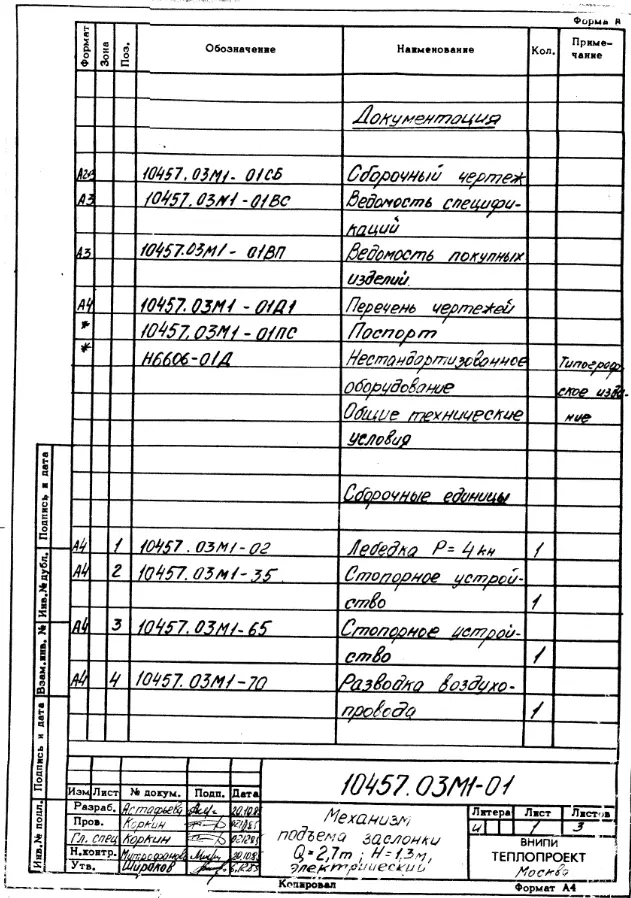 Форма 8
Формат Зона Поз. Обозначение Наименование Кол. Приме-
чание
Документация
10457.03М1-01СБ Сборочный чертеж
А3 10457.03М1-01ВС Ведомость специфи-
каций
А3 10457.03М1-01ВП Ведомость покупных
изделий
А4 10457.03М1-01Д1 Перечень чертежей
* 10457.03М1-01ПС Паспорт
* Н6606-01Д Нестандартизованное Типограф-
оборудование ское изда-
Общие технические ние
условия
Сборочные единицы
А4 1 10457.03М1-02 Лебедка Р=4кн 1
А4 2 10457.03М1-35 Стопорное устрой-
ство 1
А4 3 10457.03М1-65 Стопорное устрой-
ство 1
А4 4 10457.03М1-70 Разводка воздухо-
провода 1
Подпись и дата
Инв.№ дубл.
Взам.инв. №
Подпись и дата
Инв.№ подл.
10457.03М1-01
Изм Лист № докум. Подп. Дата
Разраб. Астафьева
Пров. Коркин
Гл. спец Коркин
Н.контр. Митрофанова
Утв. Ширяков
Механизм
подъема заслонки
Q=2,7т; Н=1,3м,
электрический
Литера Лист Листов
и 1 3
ВНИПИ
ТЕПЛОПРОЕКТ
Москва
Копировал Формат А4